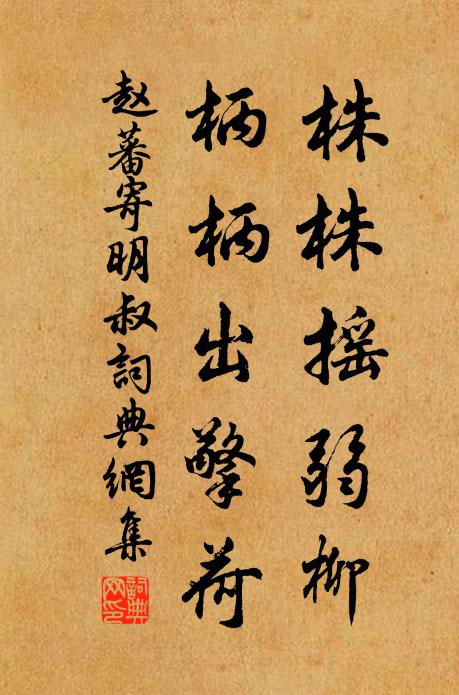 株株摇弱柳
柄柄出擎荷
赵蕃寄明叔詞典網集
詞典网印